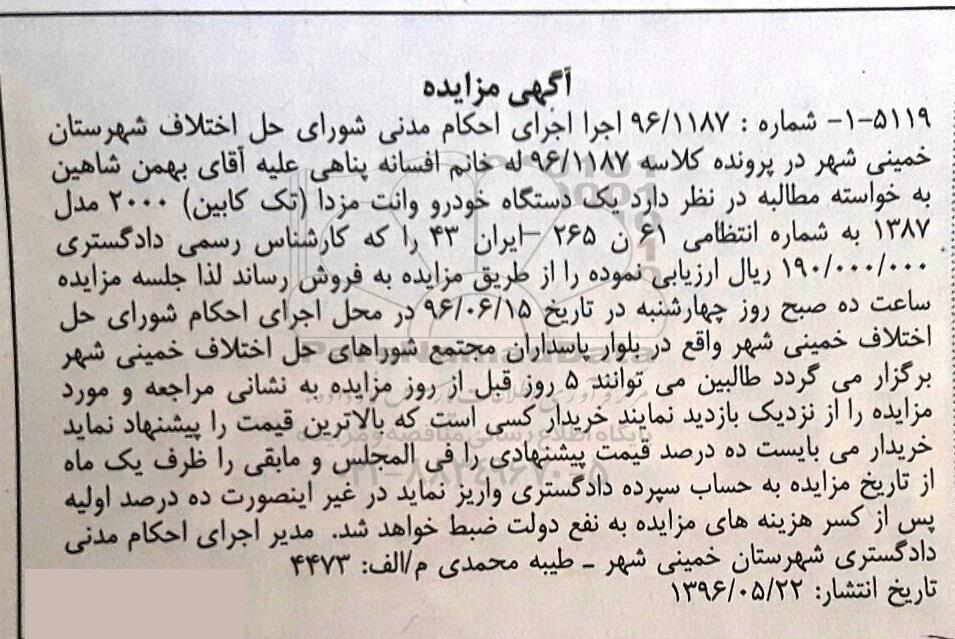 آگهی مزایده
۵۱۱۹-۱- شماره : ۹۶/۱۱۸۷ اجرا اجرای احکام مدنی شورای حل اختلاف شهرستان
خمینی شهر در پرونده کلاسه ۹۶/۱۱۸۷ له خانم افسانه پناهی علیه آقای بهمن شاهین
به خواسته مطالبه در نظر دارد یک دستگاه خودرو وانت مزدا (تک کابین) ۲۰۰۰ مدل
۱۳۸۷ به شماره انتظامی ۶۱ ن ۲۶۵ –ایران ۴۳ را که کارشناس رسمی دادگستری
۱۹۰/۰۰۰/۰۰۰ ریال ارزیابی نموده را از طریق مزایده به فروش رساند لذا جلسه مزایده
ساعت ده صبح روز چهارشنبه در تاریخ ۹۶/۰۶/۱۵ در محل اجرای احکام شورای حل
اختلاف خمینی شهر واقع در بلوار پاسداران مجتمع شوراهای حل اختلاف خمینی شهر
برگزار می گردد طالبین می توانند ۵ روز قبل از روز مزایده به نشانی مراجعه و مورد
مزایده را از نزدیک بازدید نمایند خریدار کسی است که بالاترین قیمت را پیشنهاد نماید
خریدار می بایست ده درصد قیمت پیشنهادی را فی المجلس و مابقی را ظرف یک ماه
از تاریخ مزایده به حساب سپرده دادگستری واریز نماید در غیر اینصورت ده درصد اولیه
پس از کسر هزینه های مزایده به نفع دولت ضبط خواهد شد. مدیر اجرای احکام مدنی
دادگستری شهرستان خمینی شهر ـ طیبه محمدی م/الف: ۴۴۷۳
تاریخ انتشار: ۱۳۹۶/۰۵/۲۲